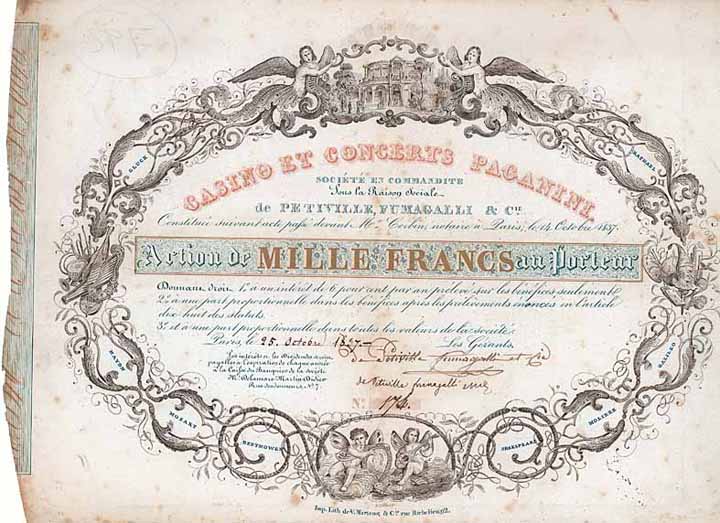 CASINO ET CONCERTS PAGANINI,
SOCIÉTÉ EN COMMANDITE
Sous la Raison Sociale
de PETIVILLE, FUMAGALLI & Cie
Constituée suivant acte passé devant Me Corbin, notaire à Paris, le 14 Octobre 1837.
Action de MILLE FRANCS au Porteur
Donnant droit 1° à un intérêt de 6 pour cent par an prélevé sur les bénéfices seulement
2° à une part proportionnelle dans les bénéfices après les prélèvements énoncés en l'article
dix huit des statuts.
3° et à une part proportionnelle dans toutes les valeurs de la société.
Paris, le 25 Octobre 1837
Les Gérants,
Les intérêts et les Dividendes seront
payables à l'expiration de chaque année
à la Caisse du Banquier de la Société
Mr. Delamarre Martin Didier
N° 7.
de Petiville fumagalli et Cie
de Petiville fumagalli
N° 174.
GLUCK
RAPHAEL
HAYDN
MOZART
BEETHOVEN
SHAKSPEARE
MOLIERE
Imp. Lith. de V. & Cie rue Richelieu, 92.